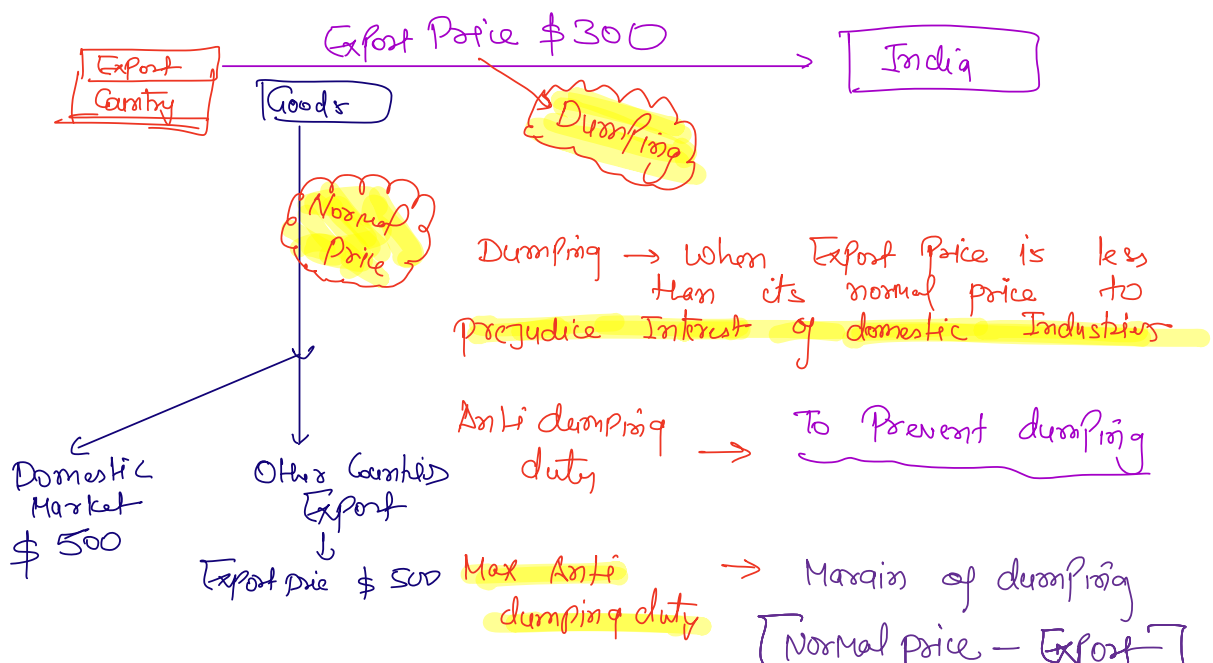 Export Price $ 300
Export
Country
Goods
India
Dumping
Normal
Price
Dumping → When Export Price is less
than its normal price to
prejudice Interest of domestic Industries
Anti dumping
duty
→ To Prevent dumping
Domestic
Market
$ 500
Other Countries
Export
Export price $ 500
Max Anti
dumping duty
→ Margin of dumping
[Normal price - Export]